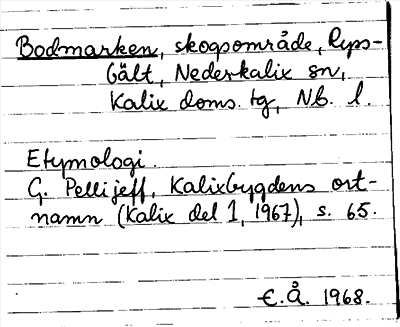 Bodmarken, skogsområde, Ryss-
bält, Nederkalix sn,
Kalix doms. tg, Nb. l.
Etymologi.
G. Pellijeff, Kalixbygdens ort-
namn (Kalix del 1, 1967), s. 65.
E.Å. 1968.